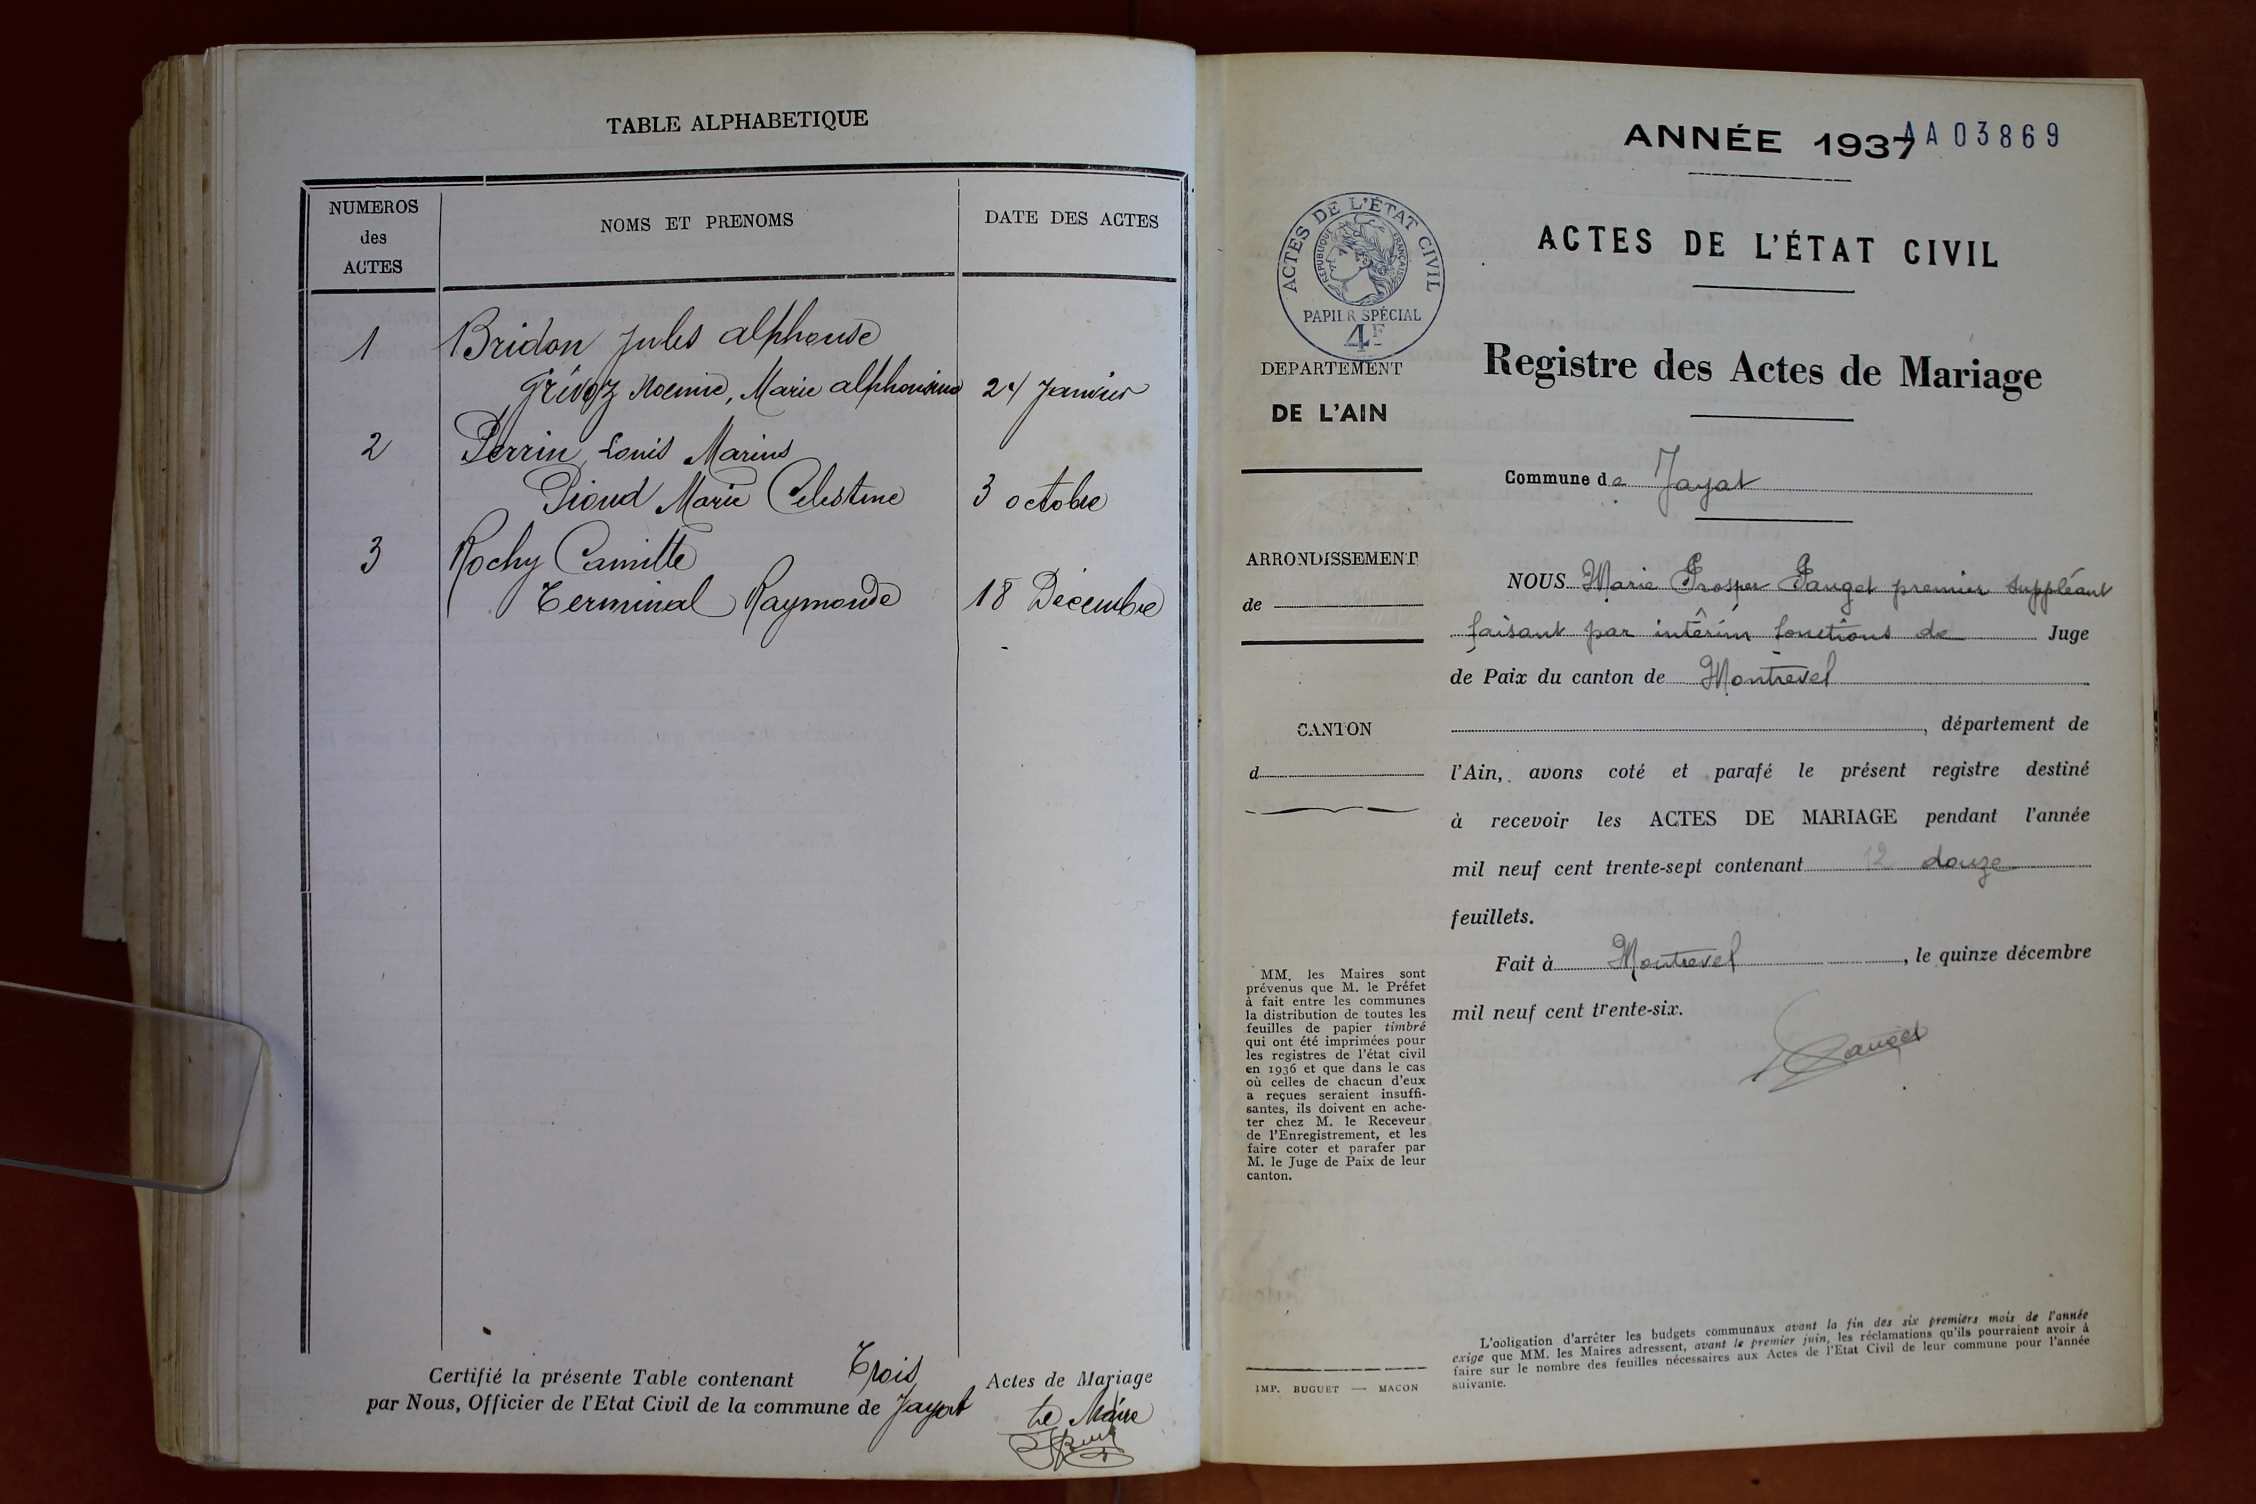 TABLE ALPHABETIQUE
NUMEROS
des
ACTES
NOMS ET PRENOMS
DATE DES ACTES
1 Bridon Jules Alphonse
Grévoz Noemie, Marie Alphonsine 24 Janvier
2 Perrin Louis Marius
Pioud Marie Celestine 3 octobre
3 Rochy Camille
Terminal Raymonde 18 Décembre
Certifié la présente Table contenant Trois Actes de Mariage
par Nous, Officier de l'Etat Civil de la commune de Jayat
Le Maire
ANNÉE 1937
AA03869
ACTES DE L'ÉTAT CIVIL
RÉPUBLIQUE FRANÇAISE
PAPIER SPÉCIAL
4F
ACTES DE L'ÉTAT CIVIL
Registre des Actes de Mariage
DEPARTEMENT
DE L'AIN
Commune de Jayat
ARRONDISSEMENT
de
CANTON
d
NOUS Marie Prosper Pauget premier suppléant
faisant par intérim fonctions de Juge
de Paix du canton de Montrevel
, département de
l'Ain, avons coté et parafé le présent registre destiné
à recevoir les ACTES DE MARIAGE pendant l'année
mil neuf cent trente-sept contenant 12 douze
feuillets.
Fait à Montrevel , le quinze décembre
mil neuf cent trente-six.
Pauget
MM. les Maires sont
prévenus que M. le Préfet
à fait entre les communes
la distribution de toutes les
feuilles de papier timbré
qui ont été imprimées pour
les registres de l'état civil
en 1936 et que dans le cas
où celles de chacun d'eux
a reçues seraient insuffi-
santes, ils doivent en ache-
ter chez M. le Receveur
de l'Enregistrement, et les
faire coter et parafer par
M. le Juge de Paix de leur
canton.
IMP. BUGUET — MACON
L'obligation d'arrêter les budgets communaux avant la fin des six premiers mois de l'année
exige que MM. les Maires adressent, avant le premier juin, les réclamations qu'ils pourraient avoir à
faire sur le nombre des feuilles nécessaires aux Actes de l'Etat Civil de leur commune pour l'année
suivante.